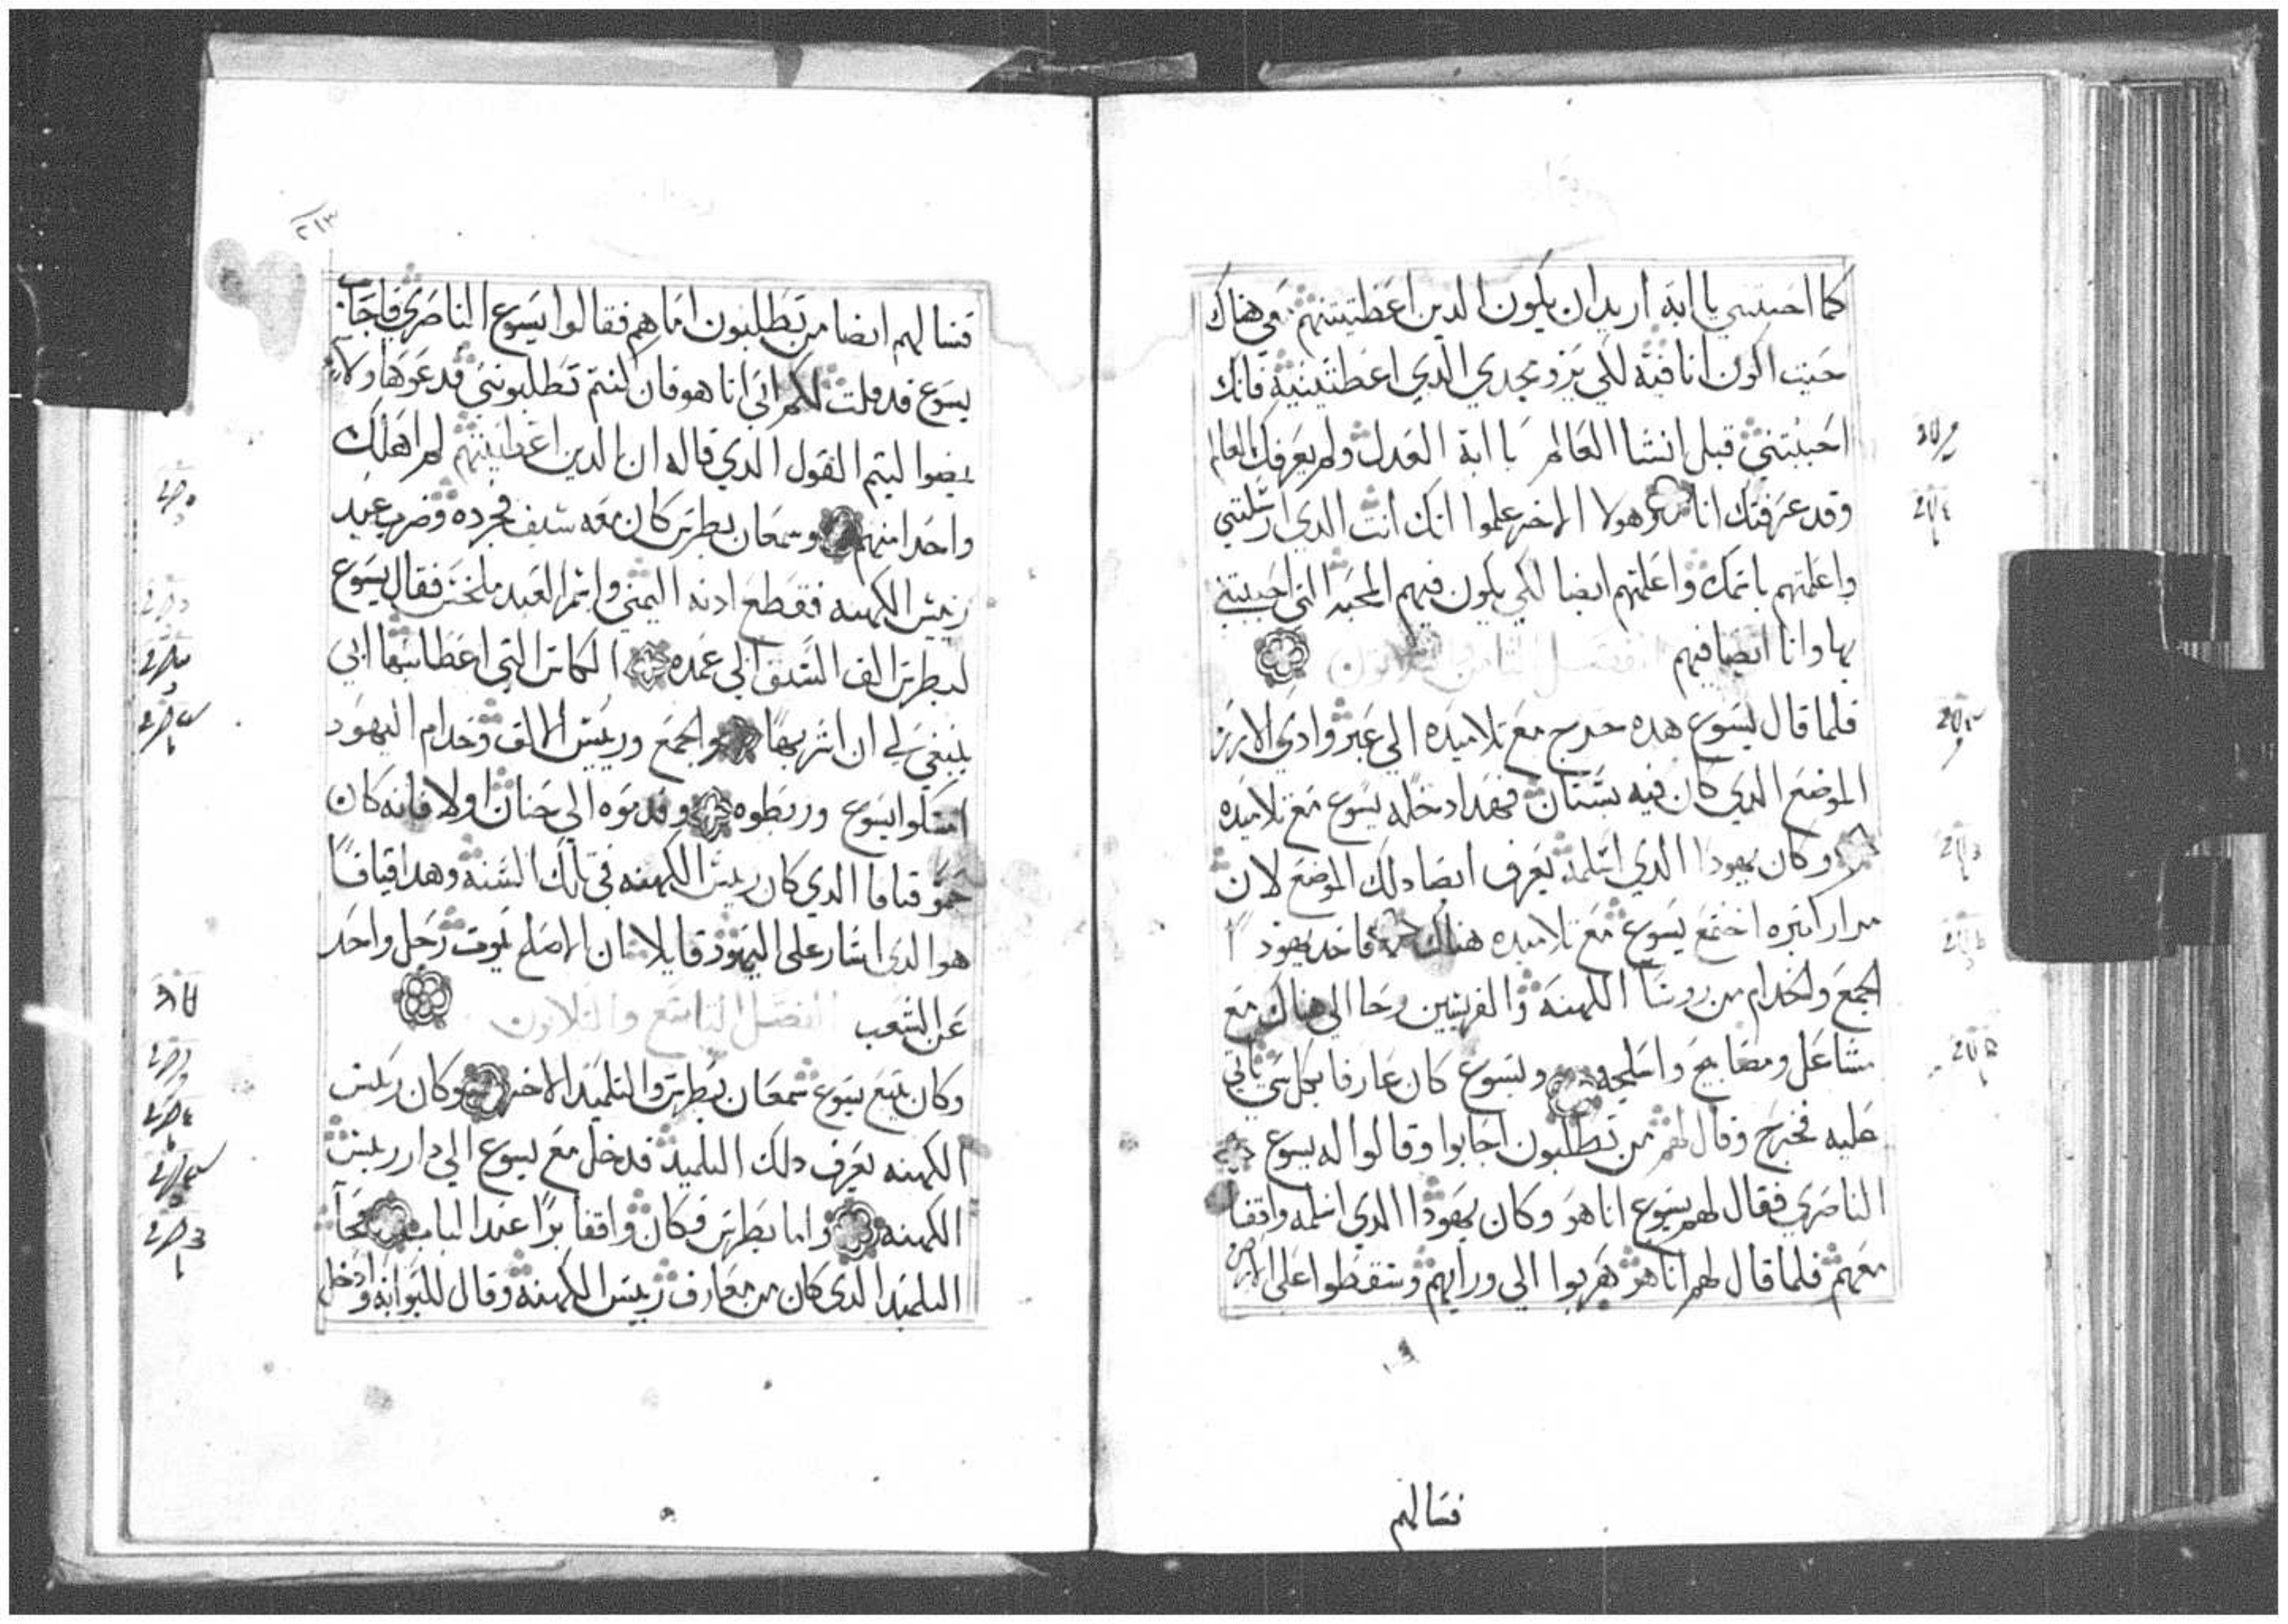 كما احببتني يا ابه اريد ان يكون الدين اعطيتنيهم في هناك
حيث اكون انا فيه لكي يزو مجدي الدي اعطيتنيه فانك
احببتني قبل انشا العالم يا ابه العدل ولم يعرفك العالم
وقد عرفتك انا وهولا الاخر علموا انك انت الدي ارسلتني
واعلمتهم باسمك واعلمهم ايضا لكي يكون فيهم المحبه التي احببتني
بها وانا ايضا فيهم الفصل الثامن والثلاثون
فلما قال يسوع هده خرج مع تلاميده الي عبر وادي الارز
الموضع الدي كان فيه بستان فهدا دخله يسوع مع تلاميده
وكان يهودا الدي اسلمه يعرف ايضا دلك الموضع لان
مرار كثيره اجتمع يسوع مع تلاميده هناك فاخد يهودا
الجمع والخدام من روسا الكهنه والفريسين وجا الي هناك مع
مشاعل ومصابيح واسلحه ويسوع كان عارفا بكل شي ياتي
عليه فخرج وقال لهم من تطلبون اجابوا وقالوا له يسوع
الناصري فقال لهم يسوع انا هو وكان يهودا الدي اسلمه واقفا
معهم فلما قال لهم انا هو هربوا الي ورايهم وسقطوا علي الارض
فسالهم
٢١٣
فسالهم ايضا من تطلبون اما هم فقالوا يسوع الناصري فاجاب
يسوع قد قلت لكم اني انا هو فان كنتم تطلبونني فدعوا هاولاء
يمضوا ليتم القول الدي قاله ان الدين اعطيتنيهم لم اهلك
واحدا منهم وسمعان بطرس كان معه سيف فجرده وضرب عبد
رييس الكهنه فقطع ادنه اليمني واسم العبد ملخس فقال يسوع
لبطرس الق السيف الي غمده الكاس التي اعطانيها ابي
ينبغي لي ان اشربها والجمع ورييس الالف وخدام اليهود
امسكوا يسوع وربطوه وقدموه الي حنان اولا فانه كان
حمو قيافا الدي كان رييس الكهنه في تلك السنه وهدا قيافا
هو الدي اشار علي اليهود قايلا ان الاصلح يموت رجل واحد
عن الشعب الفصل التاسع والثلاثون
وكان يتبع يسوع سمعان بطرس والتلميد الاخر وكان رييس
الكهنه يعرف دلك التلميد فدخل مع يسوع الي دار رييس
الكهنه واما بطرس فكان واقفا برا عند الباب فجا
التلميد الدي كان من معارف رييس الكهنه وقال للبوابه وادخل